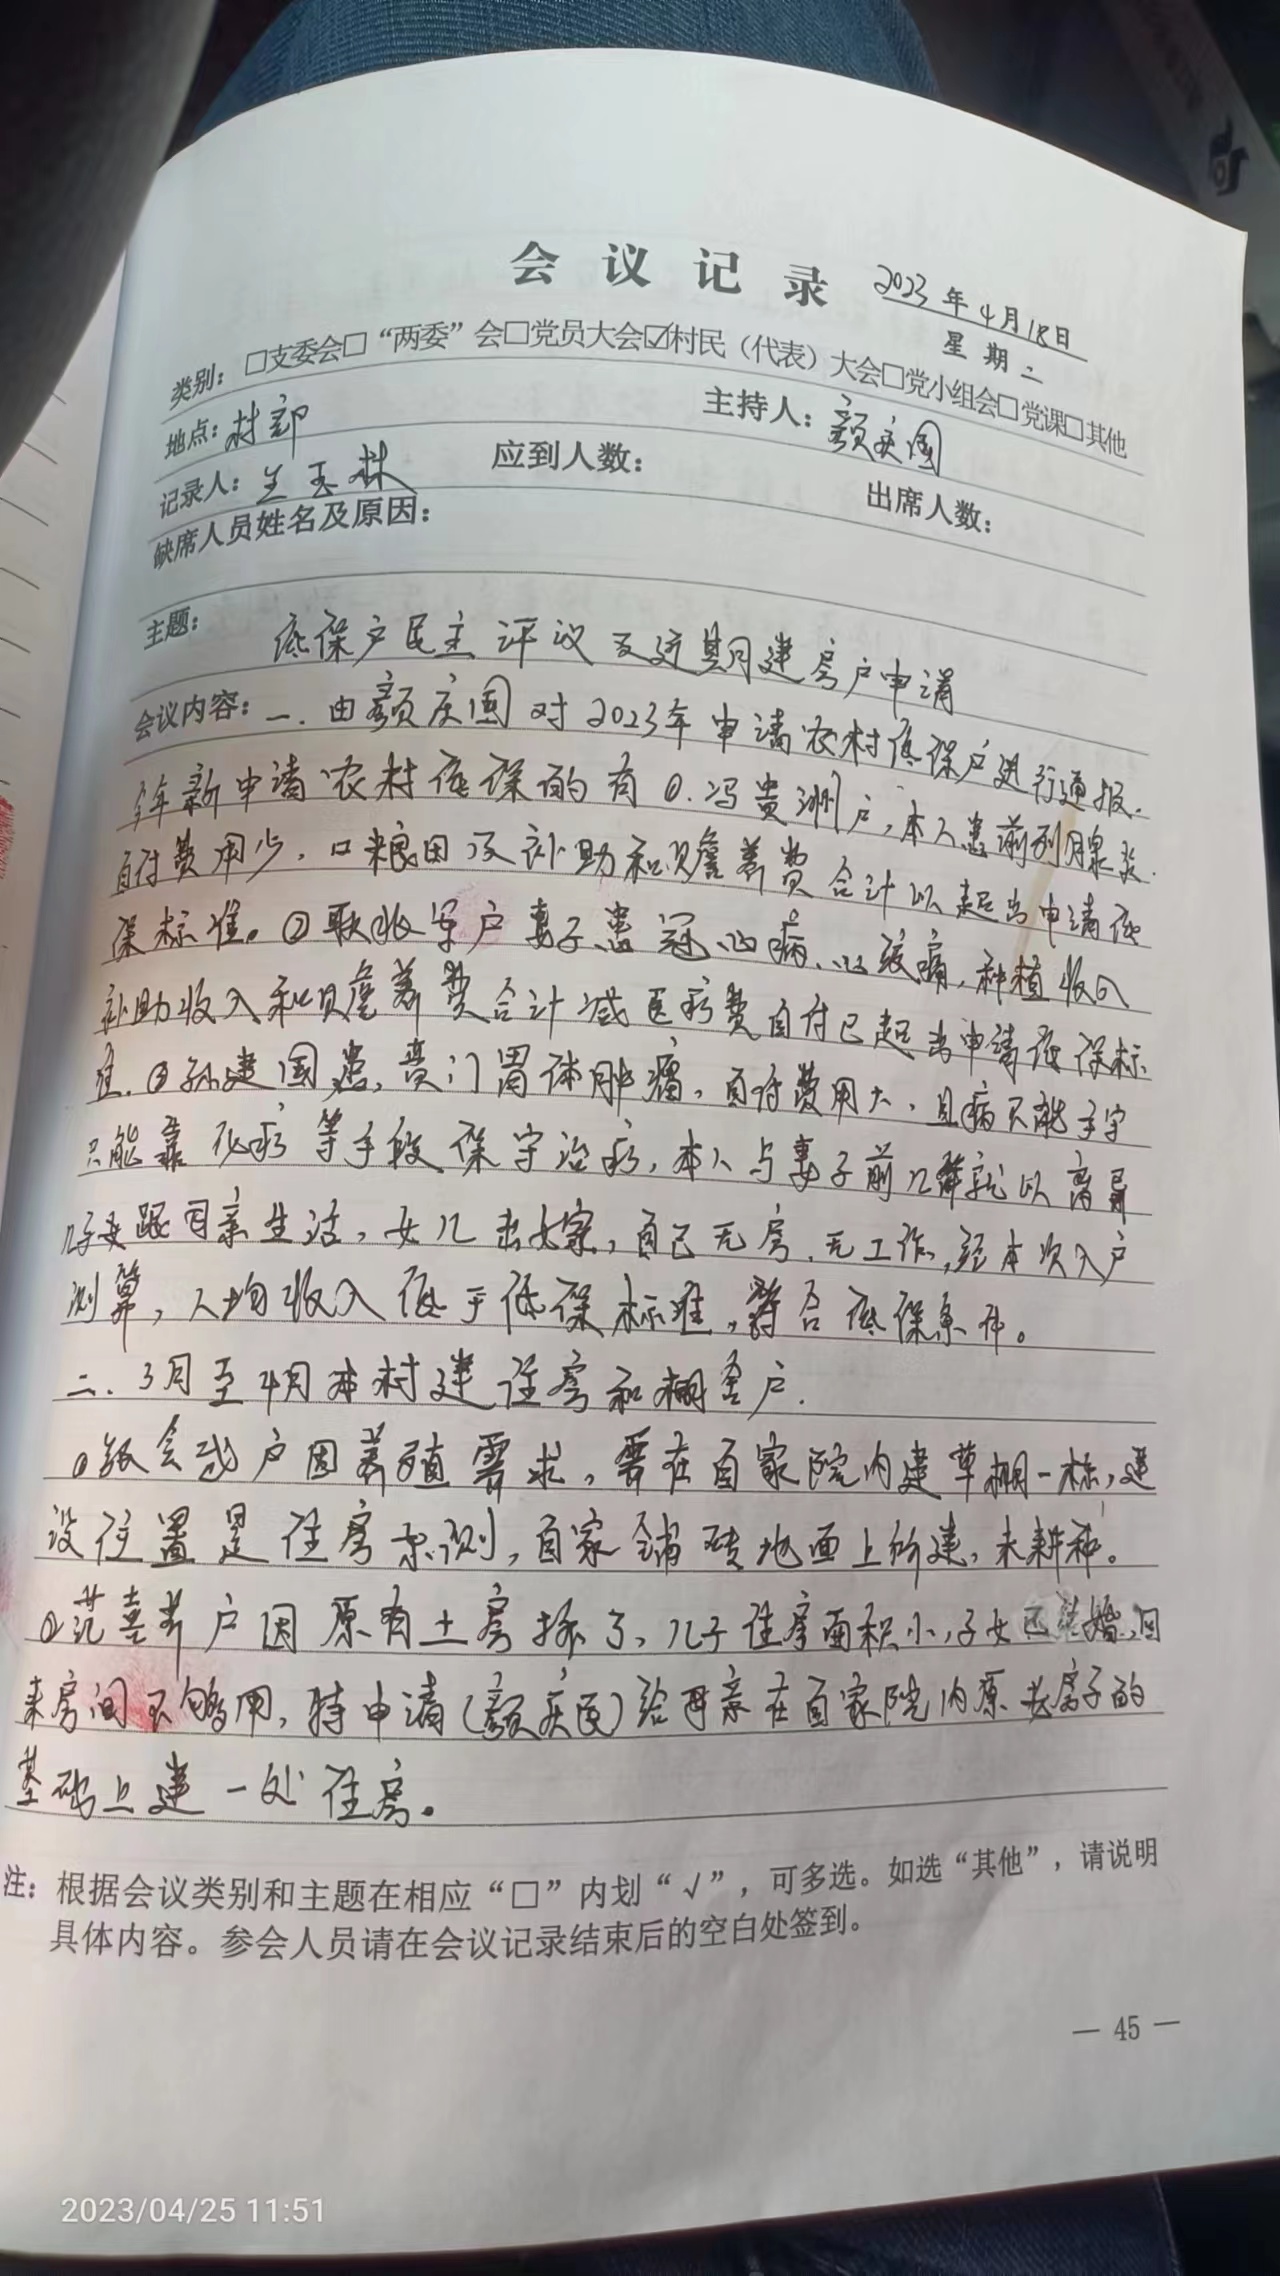 会议记录
2023年4月18日
星期二
类别：□支委会□“两委”会□党员大会☑村民（代表）大会□党小组会□党课□其他
地点：村部 主持人：颜庆国
记录人：王玉林 应到人数： 出席人数：
缺席人员姓名及原因：
主题： 低保户民主评议及近期建房户申请
会议内容：一.由颜庆国对2023年申请农村低保户进行通报.
新申请农村低保的有①.冯贵洲户,本人患前列腺炎.
自付费用少,口粮田及补助和赡养费合计以起出申请低
保标准。②耿收军户妻子患冠心病、心绞痛,种植收入
补助收入和赡养费合计减医疗费自付已起出申请低保标
准.③孙建国患,贲门胃体肿瘤,自付费用大,且病不能手字
只能靠化疗等手段保守治疗,本人与妻子前几年就以离异
儿子跟母亲生活,女儿出嫁,自己无房.无工作,经本次入户
测算,人均收入低于低保标准,符合低保条件。
二.3月至4月本村建住房和棚舍户.
①会成户因养殖需求,需在自家院内建草棚一栋,建
设位置是住房东侧,自家铺砖地面上所建,未耕种。
②范喜并户因原有土房拆了,儿子住房面积小,子女已结婚,回
来房间不够用,特申请(颜庆国)给母亲在自家院内原老房子的
基础上建一处住房。
注：根据会议类别和主题在相应“□”内划“√”，可多选。如选“其他”，请说明
具体内容。参会人员请在会议记录结束后的空白处签到。
— 45 —
2023/04/25 11:51